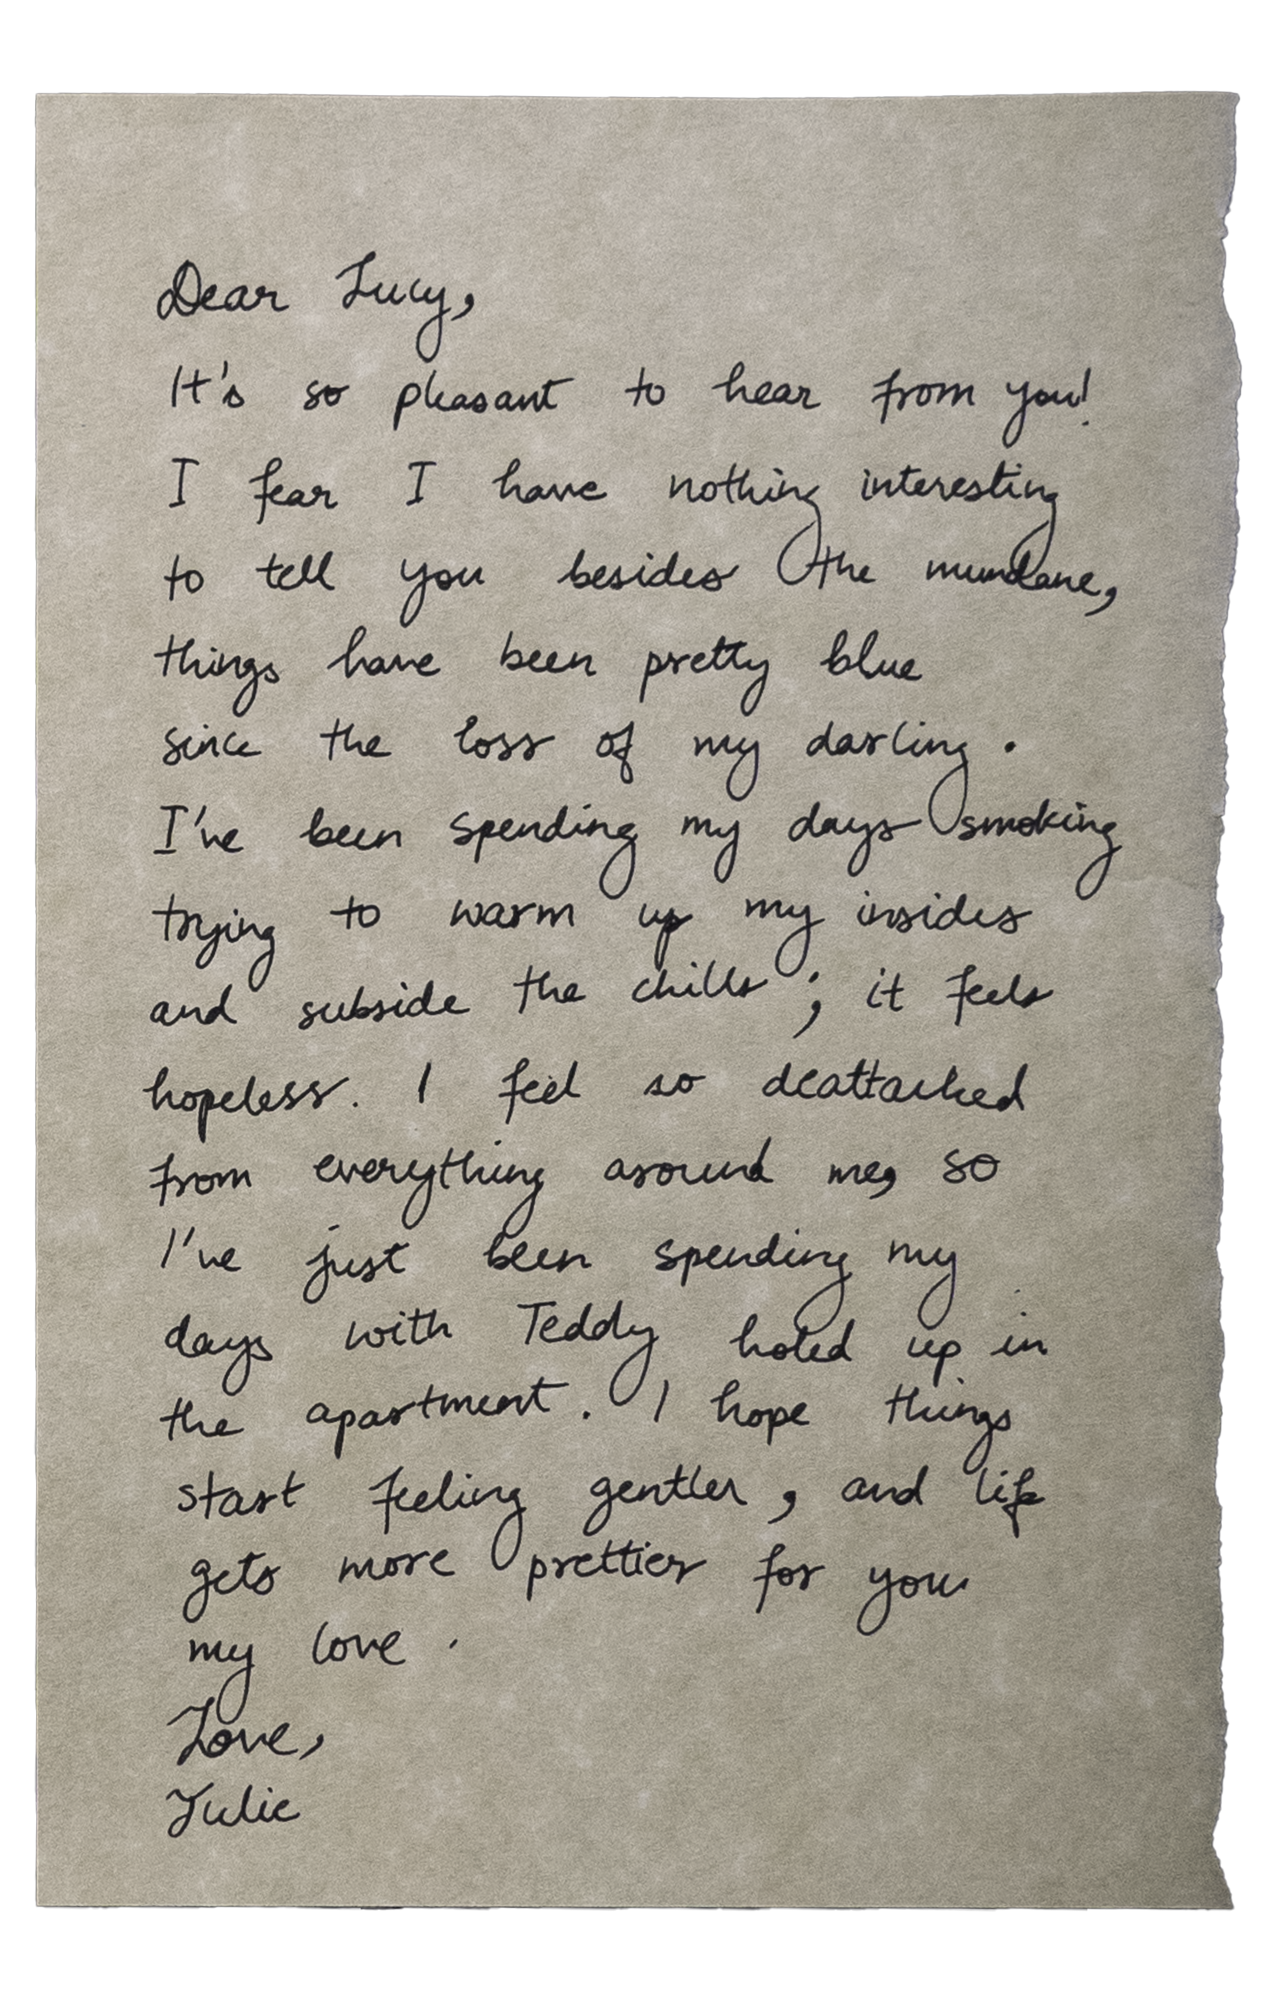 Dear Lucy,
It's so pleasant to hear from you!
I fear I have nothing interesting
to tell you besides the mundane,
things have been pretty blue
since the loss of my darling.
I've been spending my days smoking
trying to warm up my insides
and subside the chills; it feels
hopeless. I feel so deattached
from everything around me, so
I've just been spending my
days with Teddy holed up in
the apartment. I hope things
start feeling gentler, and life
gets more prettier for you
my love.
Love,
Julie